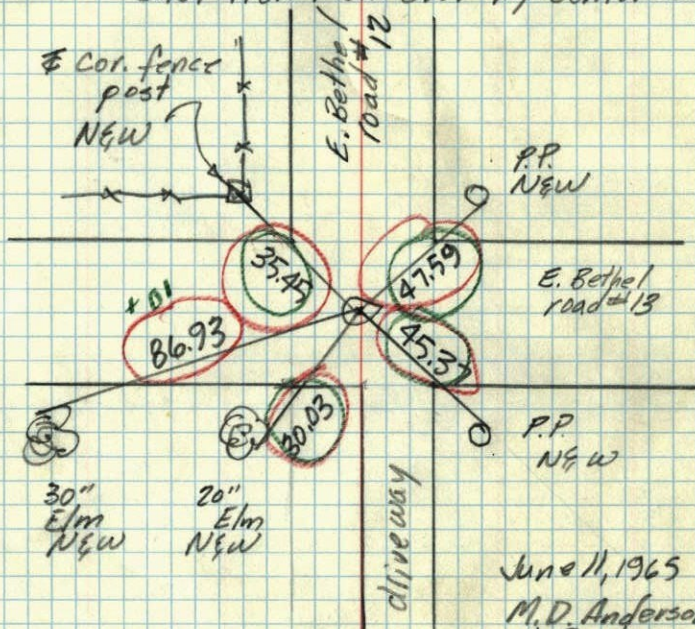 ₵ Cor. fence
post
N&W
E. Bethel
road #12
P.P.
N&W
35.45
47.59
E. Bethel
road #13
+.01
86.93
45.37
30.03
P.P.
N&W
30"
Elm
N&W
20"
Elm
N&W
driveway
June 11, 1965
M.D. Anderso